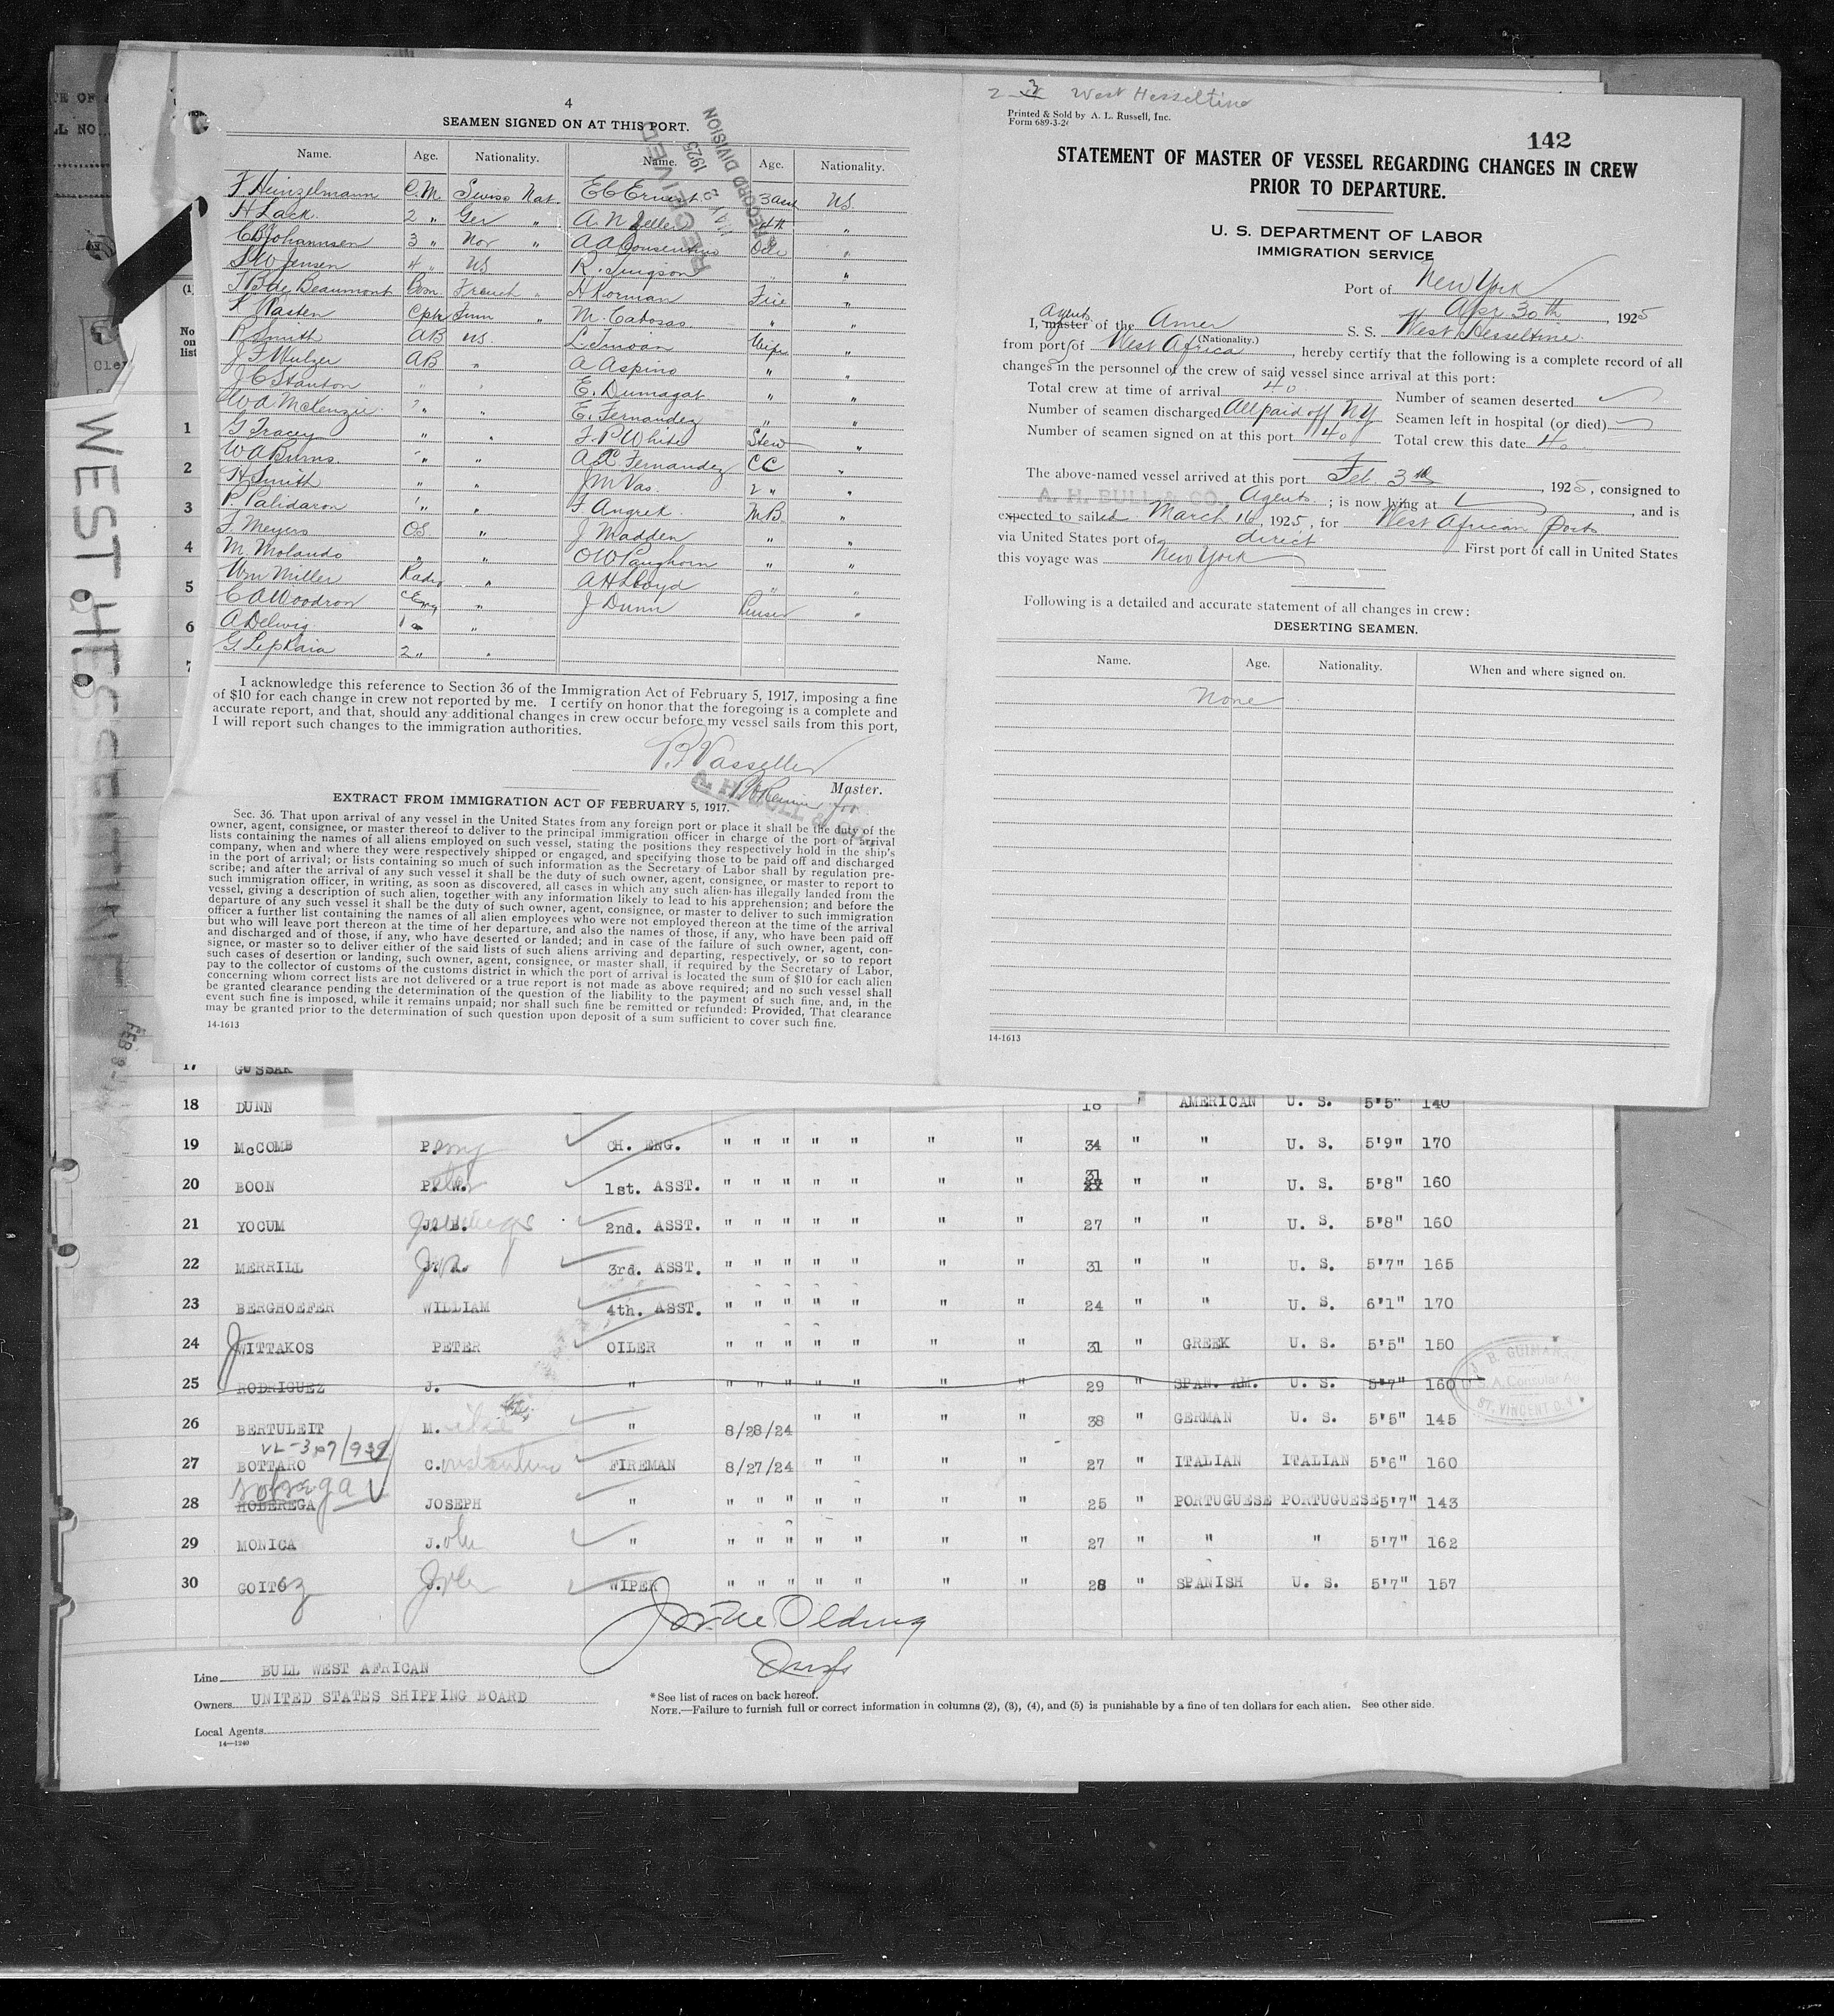 4
SEAMEN SIGNED ON AT THIS PORT.
Name. Age. Nationality. Name. Age. Nationality.
F Heinzelmann C.M. Swiss Nat. E C Ernest 3 asst US
H Lack. 2 " Ger " A. N 4th "
C B Johannsen 3 " Nor " A A "
S W Jensen 4 " US R. "
de Beaumont Bosn French " H Korman Fire "
Kasten Cptr Finn " M. Cabosas " "
R Smith AB US. L. Wipe "
J F Mulzer AB " A Aspino " "
J C Stanton " " E. Dumagat " "
W A. McKenzie " " E. Fernandez " "
G Tracey " " F. P White Stew "
W A Burns. " " A Fernandez CC "
H Smith " " J M Vas. 2 " "
P Palidaron " " F Angrek MB "
F. Meyers OS " J Madden " "
M. Molando " " O W " "
Wm Miller Radio " A H Lloyd "
C A Woodron C Eng " J Dunn Purser "
A Delwig 1 "
G. Lepkaia 2 " "
I acknowledge this reference to Section 36 of the Immigration Act of February 5, 1917, imposing a fine
of $10 for each change in crew not reported by me. I certify on honor that the foregoing is a complete and
accurate report, and that, should any additional changes in crew occur before my vessel sails from this port,
I will report such changes to the immigration authorities.
Master.
for
EXTRACT FROM IMMIGRATION ACT OF FEBRUARY 5, 1917.
Sec. 36. That upon arrival of any vessel in the United States from any foreign port or place it shall be the duty of the
owner, agent, consignee, or master thereof to deliver to the principal immigration officer in charge of the port of arrival
lists containing the names of all aliens employed on such vessel, stating the positions they respectively hold in the ship's
company, when and where they were respectively shipped or engaged, and specifying those to be paid off and discharged
in the port of arrival; or lists containing so much of such information as the Secretary of Labor shall by regulation pre-
scribe; and after the arrival of any such vessel it shall be the duty of such owner, agent, consignee, or master to report to
such immigration officer, in writing, as soon as discovered, all cases in which any such alien has illegally landed from the
vessel, giving a description of such alien, together with any information likely to lead to his apprehension; and before the
departure of any such vessel it shall be the duty of such owner, agent, consignee, or master to deliver to such immigration
officer a further list containing the names of all alien employees who were not employed thereon at the time of the arrival
but who will leave port thereon at the time of her departure, and also the names of those, if any, who have been paid off
and discharged and of those, if any, who have deserted or landed; and in case of the failure of such owner, agent, con-
signee, or master so to deliver either of the said lists of such aliens arriving and departing, respectively, or so to report
such cases of desertion or landing, such owner, agent, consignee, or master shall, if required by the Secretary of Labor,
pay to the collector of customs of the customs district in which the port of arrival is located the sum of $10 for each alien
concerning whom correct lists are not delivered or a true report is not made as above required; and no such vessel shall
be granted clearance pending the determination of the question of the liability to the payment of such fine, and, in the
event such fine is imposed, while it remains unpaid; nor shall such fine be remitted or refunded: Provided, That clearance
may be granted prior to the determination of such question upon deposit of a sum sufficient to cover such fine.
14-1613
RECEIVED
1925
RECORD DIVISION
West Hesseltine
Printed & Sold by A. L. Russell, Inc.
Form 689-3-24
142
STATEMENT OF MASTER OF VESSEL REGARDING CHANGES IN CREW
PRIOR TO DEPARTURE.
U. S. DEPARTMENT OF LABOR
IMMIGRATION SERVICE
Port of New York
Apr 30th, 1925
Agents
I, master of the Amer S. S. West Hesseltine
(Nationality.)
from port of West Africa, hereby certify that the following is a complete record of all
changes in the personnel of the crew of said vessel since arrival at this port:
Total crew at time of arrival 40 Number of seamen deserted
Number of seamen discharged All paid off NY Seamen left in hospital (or died)
Number of seamen signed on at this port 40 Total crew this date 40
The above-named vessel arrived at this port Feb. 3rd, 1925, consigned to
A. H. BULL & CO., Agents; is now lying at, and is
expected to sailed March 16, 1925, for West African Ports
via United States port of direct First port of call in United States
this voyage was New York
Following is a detailed and accurate statement of all changes in crew:
DESERTING SEAMEN.
Name. Age. Nationality. When and where signed on.
None
14-1613
WEST HESSELTINE
No
on
list
1
2
3
4
5
6
7
17 GUSSAK
18 DUNN 18 " AMERICAN U. S. 5'5" 140
19 McCOMB P. CH. ENG. " " " " " " " 34 " " U. S. 5'9" 170
20 BOON P. W. 1st. ASST. " " " " " " " 31 " " U. S. 5'8" 160
21 YOCUM J. 2nd. ASST. " " " " " " " 27 " " U. S. 5'8" 160
22 MERRILL J. R. 3rd. ASST. " " " " " " " 31 " " U. S. 5'7" 165
23 BERGHOEFER WILLIAM 4th. ASST. " " " " " " " 24 " " U. S. 6'1" 170
24 WITTAKOS PETER OILER " " " " " " " 31 " GREEK U. S. 5'5" 150
25 RODRIGUEZ J. " " " " " " " " 29 " SPAN. AM. U. S. 5'7" 160
26 BERTULEIT M. " 8/28/24 " " " " 38 " GERMAN U. S. 5'5" 145
27 BOTTARO C. FIREMAN 8/27/24 " " " " 27 " ITALIAN ITALIAN 5'6" 160
28 HOBEREGA JOSEPH " " " " " " " " 25 " PORTUGUESE PORTUGUESE 5'7" 143
29 MONICA J. " " " " " " " " 27 " " " 5'7" 162
30 GOITO J. WIPER " " " " " " " 28 " SPANISH U. S. 5'7" 157
Line BULL WEST AFRICAN
Owners UNITED STATES SHIPPING BOARD
Local Agents
14—1240
* See list of races on back hereof.
NOTE.—Failure to furnish full or correct information in columns (2), (3), (4), and (5) is punishable by a fine of ten dollars for each alien. See other side.